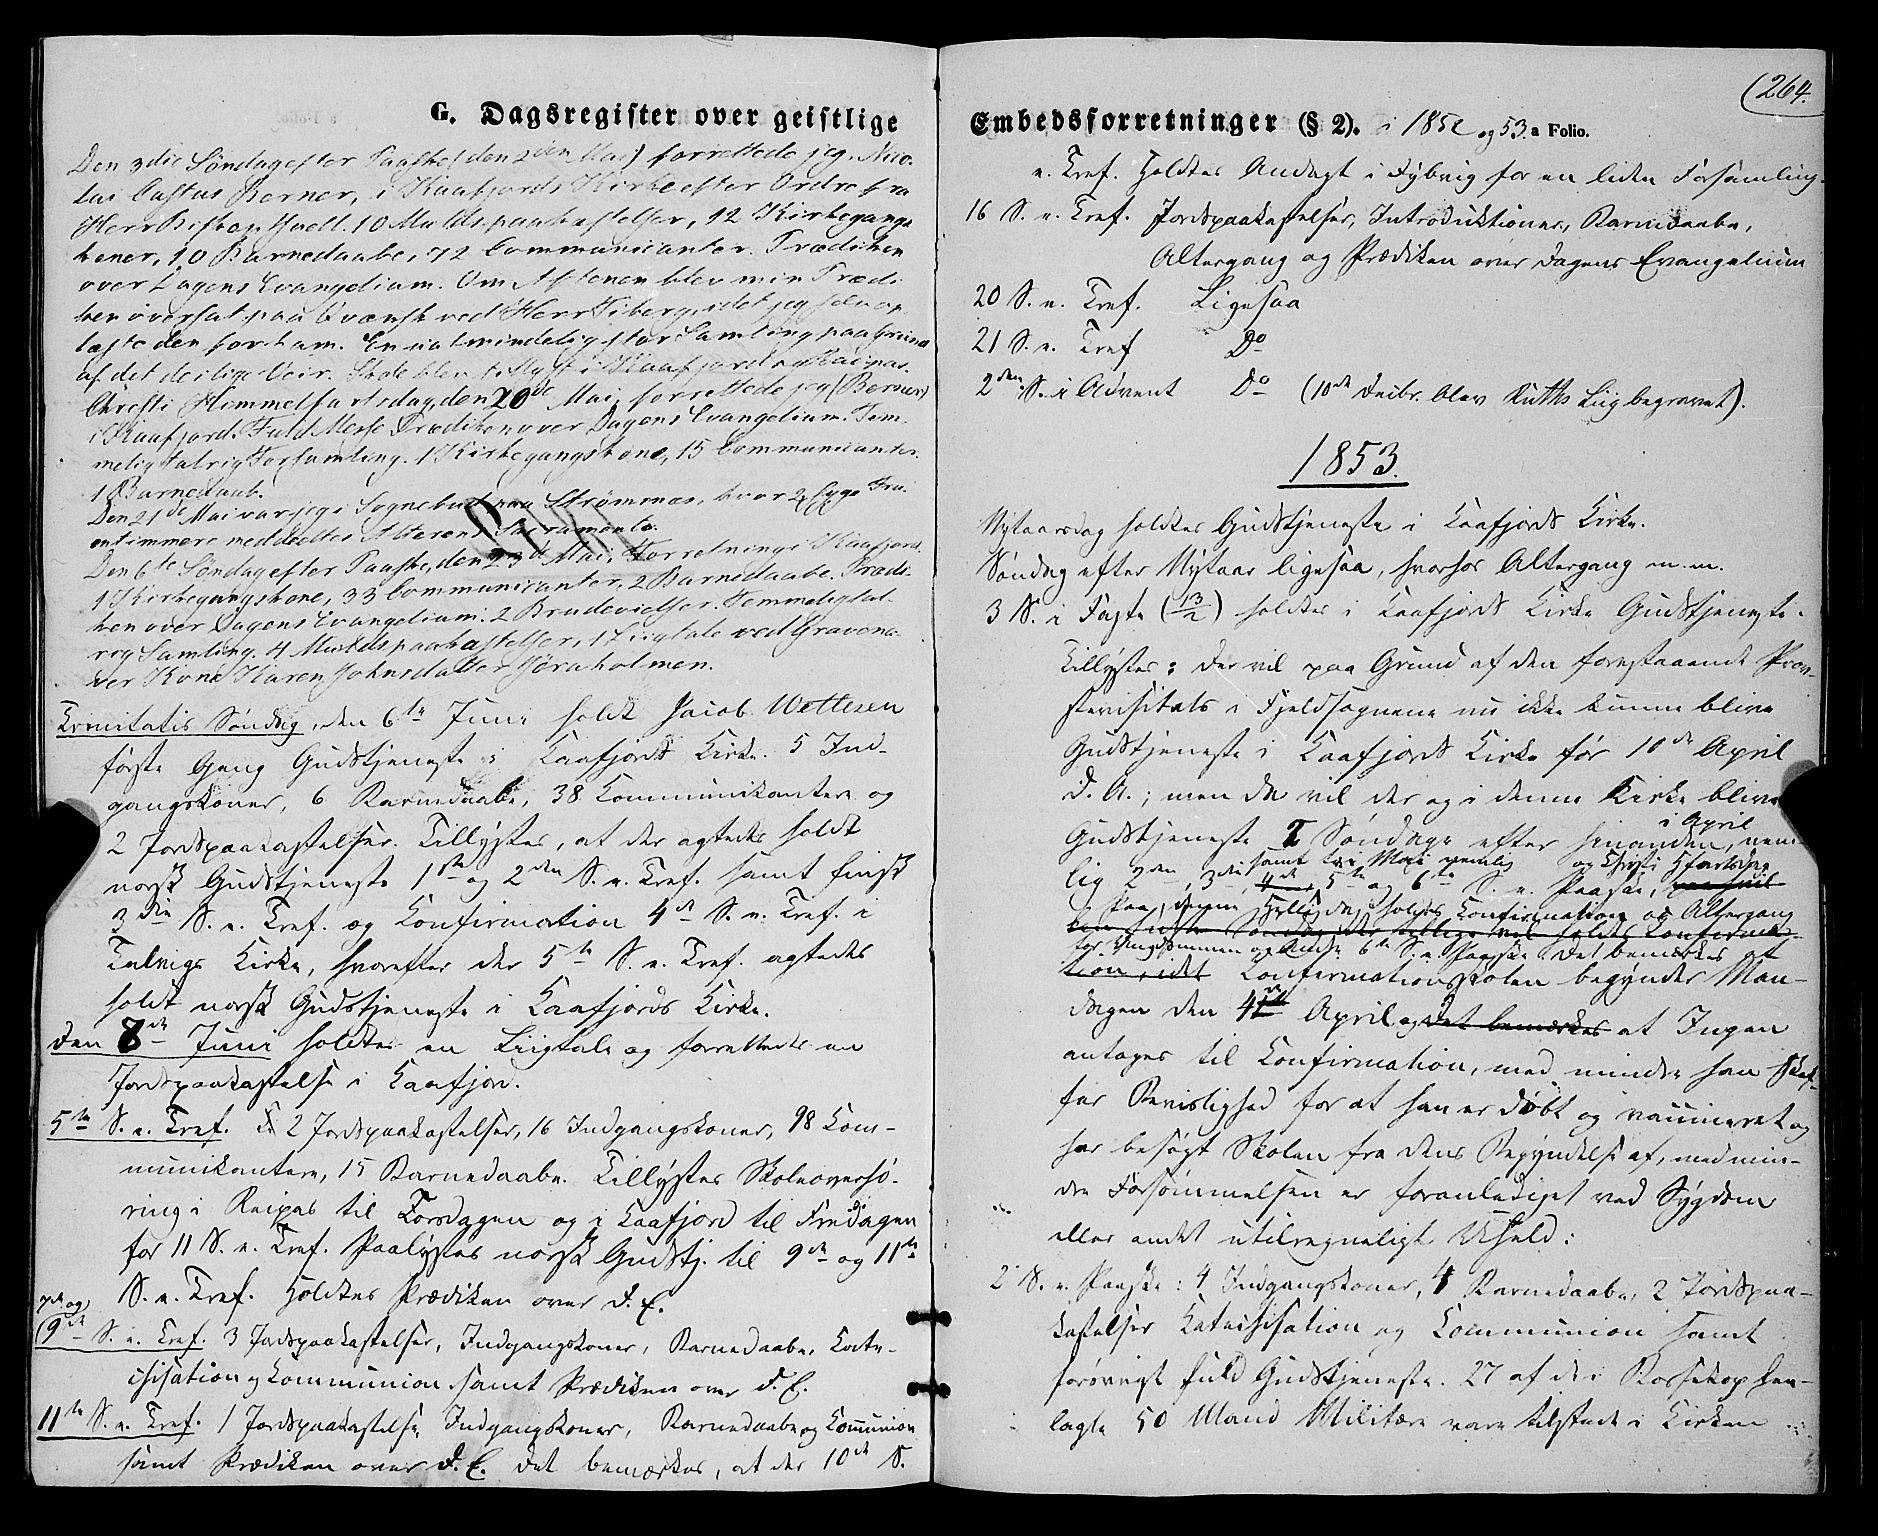 G. Dagsregister over geistlige
Den 3die Søndag efter Paaske (den 2den Mai) forrettede jeg, Nico-
lai Castus Berner, i Kaafjords Kirke efter Ordre fra
Herr Biskop Juell. 10 Muldspaakastelser, 12 Kirkegangs
koner, 10 Barnedaabe, 72 Communicanter. Prædiken
over Dagens Evangelium. Om Aftenen blev min Prædi
ken oversat paa Qvænsk ved Herr Wiberg, idet jeg selv op
læste den for ham. En ualmindelig stor Samling paa Grund
af det deilige Veir. Skole blev tillyst i Kaafjord og Raipas.
Christi Himmelfartsdag, den 20de Mai, forrettede jeg (Berner)
i Kaafjord. Fuld Messe Prædiken over Dagens Evangelium. Tem
melig talrig Forsamling. 1 Kirkegangskone, 15 Communicanter.
1 Barnedaab.
Den 21de Mai var jeg i Sognebud paa Strømmen, hvor 2 syge Fru-
entimmere meddeeltes Alterens Sacramente.
Den 6te Søndag efter Paaske, den 23de Mai, Forretning i Kaafjord.
1 Kirkegangskone, 33 Communicanter, 2 Barnedaabe. Prædi-
ken over Dagens Evangelium. 2 Brudevielser. Temmelig tal-
rig Samling. 4 Muldspaakastelser, 1 Liigtale ved Graven o-
ver Kone Karen Johnsdatter Jøraholmen.
Trinitatis Søndag, den 6te Juni holdt Jacob Wettesen
første Gang Gudstjeneste i Kaafjords Kirke. 5 Ind-
gangskoner, 6 Barnedaabe, 38 Kommunikantere og
2 Jordspaakastelser. Tillystes, at der agtedes holdt
norsk Gudstjeneste 1ste og 2den S. e. Tref. samt finsk
3die S. e. Tref. og Confirmation 4de S. e. Tref. i
Talvigs Kirke, hvorefter der 5te S. e. Tref. agtedes
holdt norsk Gudstjeneste i Kaafjords Kirke.
Den 8de Juni holdtes en Liigtale og forrettedes en
Jordspaakastelse i Kaafjord.
5te S. e. Tref. 2 Jordspaakastelser, 16 Indgangskoner, 98 Kom-
munikantere, 15 Barnedaabe. Tillystes Skoleoverhø-
ring i Reipas til Torsdagen og i Kaafjord til Fredagen
før 11 S. e. Tref. Paalystes norsk Gudstj. til 9de og 11te
S. e. Tref. Holdtes Prædiken over D. E.
7de og
(9de S. e. Tref. 3 Jordspaakastelser, Indgangskoner, Barnedaabe, Kate-
chisation og Kommunion samt Prædiken over D. E.
11te S. e. Tref. 1 Jordspaakastelse, Indgangskoner, Barnedaabe og Communion
samt Prædiken over D. E. Det bemærkes, at der 10de S.
(264.
Embedsforretninger (§ 2). i 1852 og 53 a Folio.
e. Tref. Holdtes Andagt i Fybvig for en liden Forsamling.
16 S. e. Tref. Jordspaakastelser, Introduktioner, Barnedaabe,
Altergang og Prædiken over Dagens Evangelium
20 S. e. Tref. Ligesaa
21 S. e. Tref Do
2den S. i Advent Do (10de Decbr. blev Ruths Liig begravet).
1853.
Nytaarsdag holdtes Gudstjeneste i Kaafjords Kirke.
Søndag efter Nytaar ligesaa, hvorhos Altergang m. m.
3 S. i Faste (13/2) holdtes i Kaafjords Kirke Gudstjeneste.
Tillystes: Der vil paa Grund af den forestaaende Prov-
stevisitats i Fjeldsognene nu ikke kunne blive
Gudstjeneste i Kaafjords Kirke før 10de April
D. A.; men da vil der og i denne Kirke blive
i April
Gudstjeneste 2 Søndage efter hinanden, nem-
samt tre i Mai nemlig og Christi Hfartsdag
lig 2den, 3die, 4de, 5te og 6te S. e. Paaske,
Paa denne Helligdag holdes Confirmation og Altergang
den sidste Søndag der tillige vil holdes Confirma-
for Ungdommen og Andre 6te S. e. Paaske. Det bemærkes at
tion, idet Confirmationsskolen begynder Man-
dagen den 4de April og det bemærkes at Ingen
antages til Confirmation, med mindre han skaf-
fer Beviislighed for at han er døbt og vaccineret og
har besøgt Skolen fra dens Begyndelse af, medmin-
dre Forsømmelsen er foranlediget ved Sygdom
eller andet utilregneligt Uheld:
2 S. e. Paaske: 4 Indgangskoner, 4 Barnedaabe, 2 Jordspaa-
kastelser Katechisation og Communion samt
forøvrigt fuld Gudstjeneste. 27 af de i Bossekop hen-
lagte 50 Mand Militære vare tilstede i Kirken